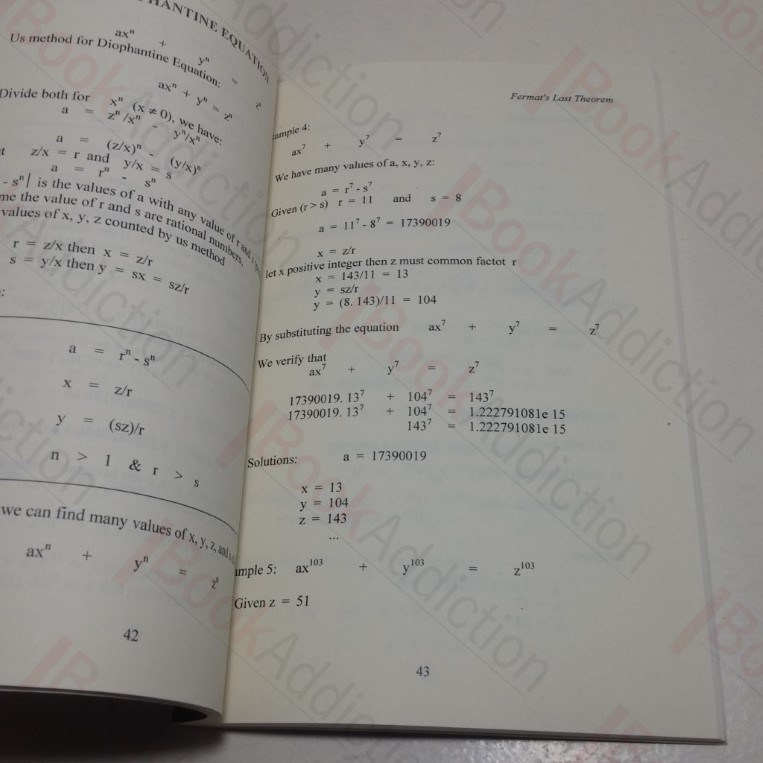 HANTINE EQUATION
axⁿ + yⁿ =
Us method for Diophantine Equation:
axⁿ + yⁿ = zⁿ
Divide both for xⁿ (x ≠ 0), we have:
a = zⁿ/xⁿ - yⁿ/xⁿ
a = (z/x)ⁿ - (y/x)ⁿ
z/x = r and y/x = s
a = rⁿ - sⁿ
- sⁿ| is the values of a with any value of r and s
me the value of r and s are rational numbers,
values of x, y, z counted by us method
r = z/x then x = z/r
s = y/x then y = sx = sz/r
:
a = rⁿ - sⁿ
x = z/r
y = (sz)/r
n > 1 & r > s
we can find many values of x, y, z, and
axⁿ + yⁿ = zⁿ
42
Fermat's Last Theorem
ample 4:
ax⁷ + y⁷ = z⁷
We have many values of a, x, y, z:
a = r⁷ - s⁷
Given (r > s) r = 11 and s = 8
a = 11⁷ - 8⁷ = 17390019
x = z/r
let x positive integer then z must common factot r
x = 143/11 = 13
y = sz/r
y = (8. 143)/11 = 104
By substituting the equation ax⁷ + y⁷ = z⁷
We verify that
ax⁷ + y⁷ = z⁷
17390019. 13⁷ + 104⁷ = 143⁷
17390019. 13⁷ + 104⁷ = 1.222791081e 15
143⁷ = 1.222791081e 15
Solutions: a = 17390019
x = 13
y = 104
z = 143
...
ample 5: ax¹⁰³ + y¹⁰³ = z¹⁰³
Given z = 51
43
BookAddiction